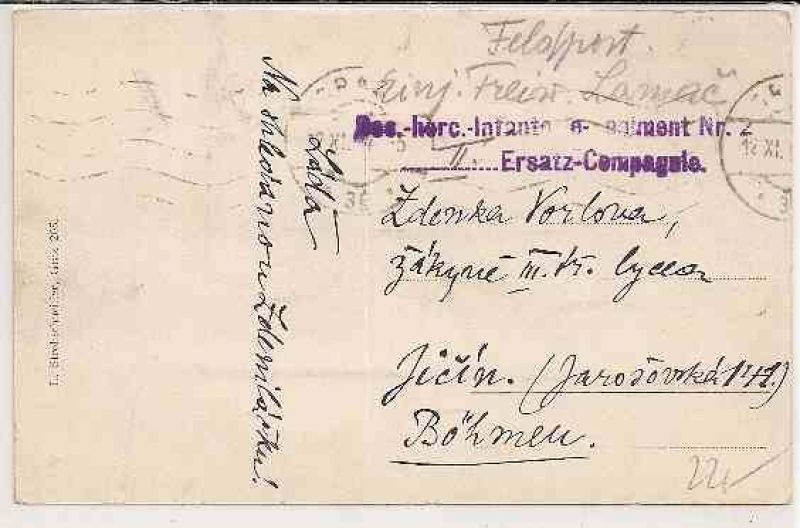 Feldpost.
Einj. Freiw. Lamač
Bos.-herc.-Infanterie-Regiment Nr. 2
II. Ersatz-Compagnie.
Zdenka Vorlova,
žákyně III. tř. lycea
Jičín. (Jarošovská 141.)
Böhmen.
Na shledanou Zdenilátku!
Láďa
12 XI.
12 XI.